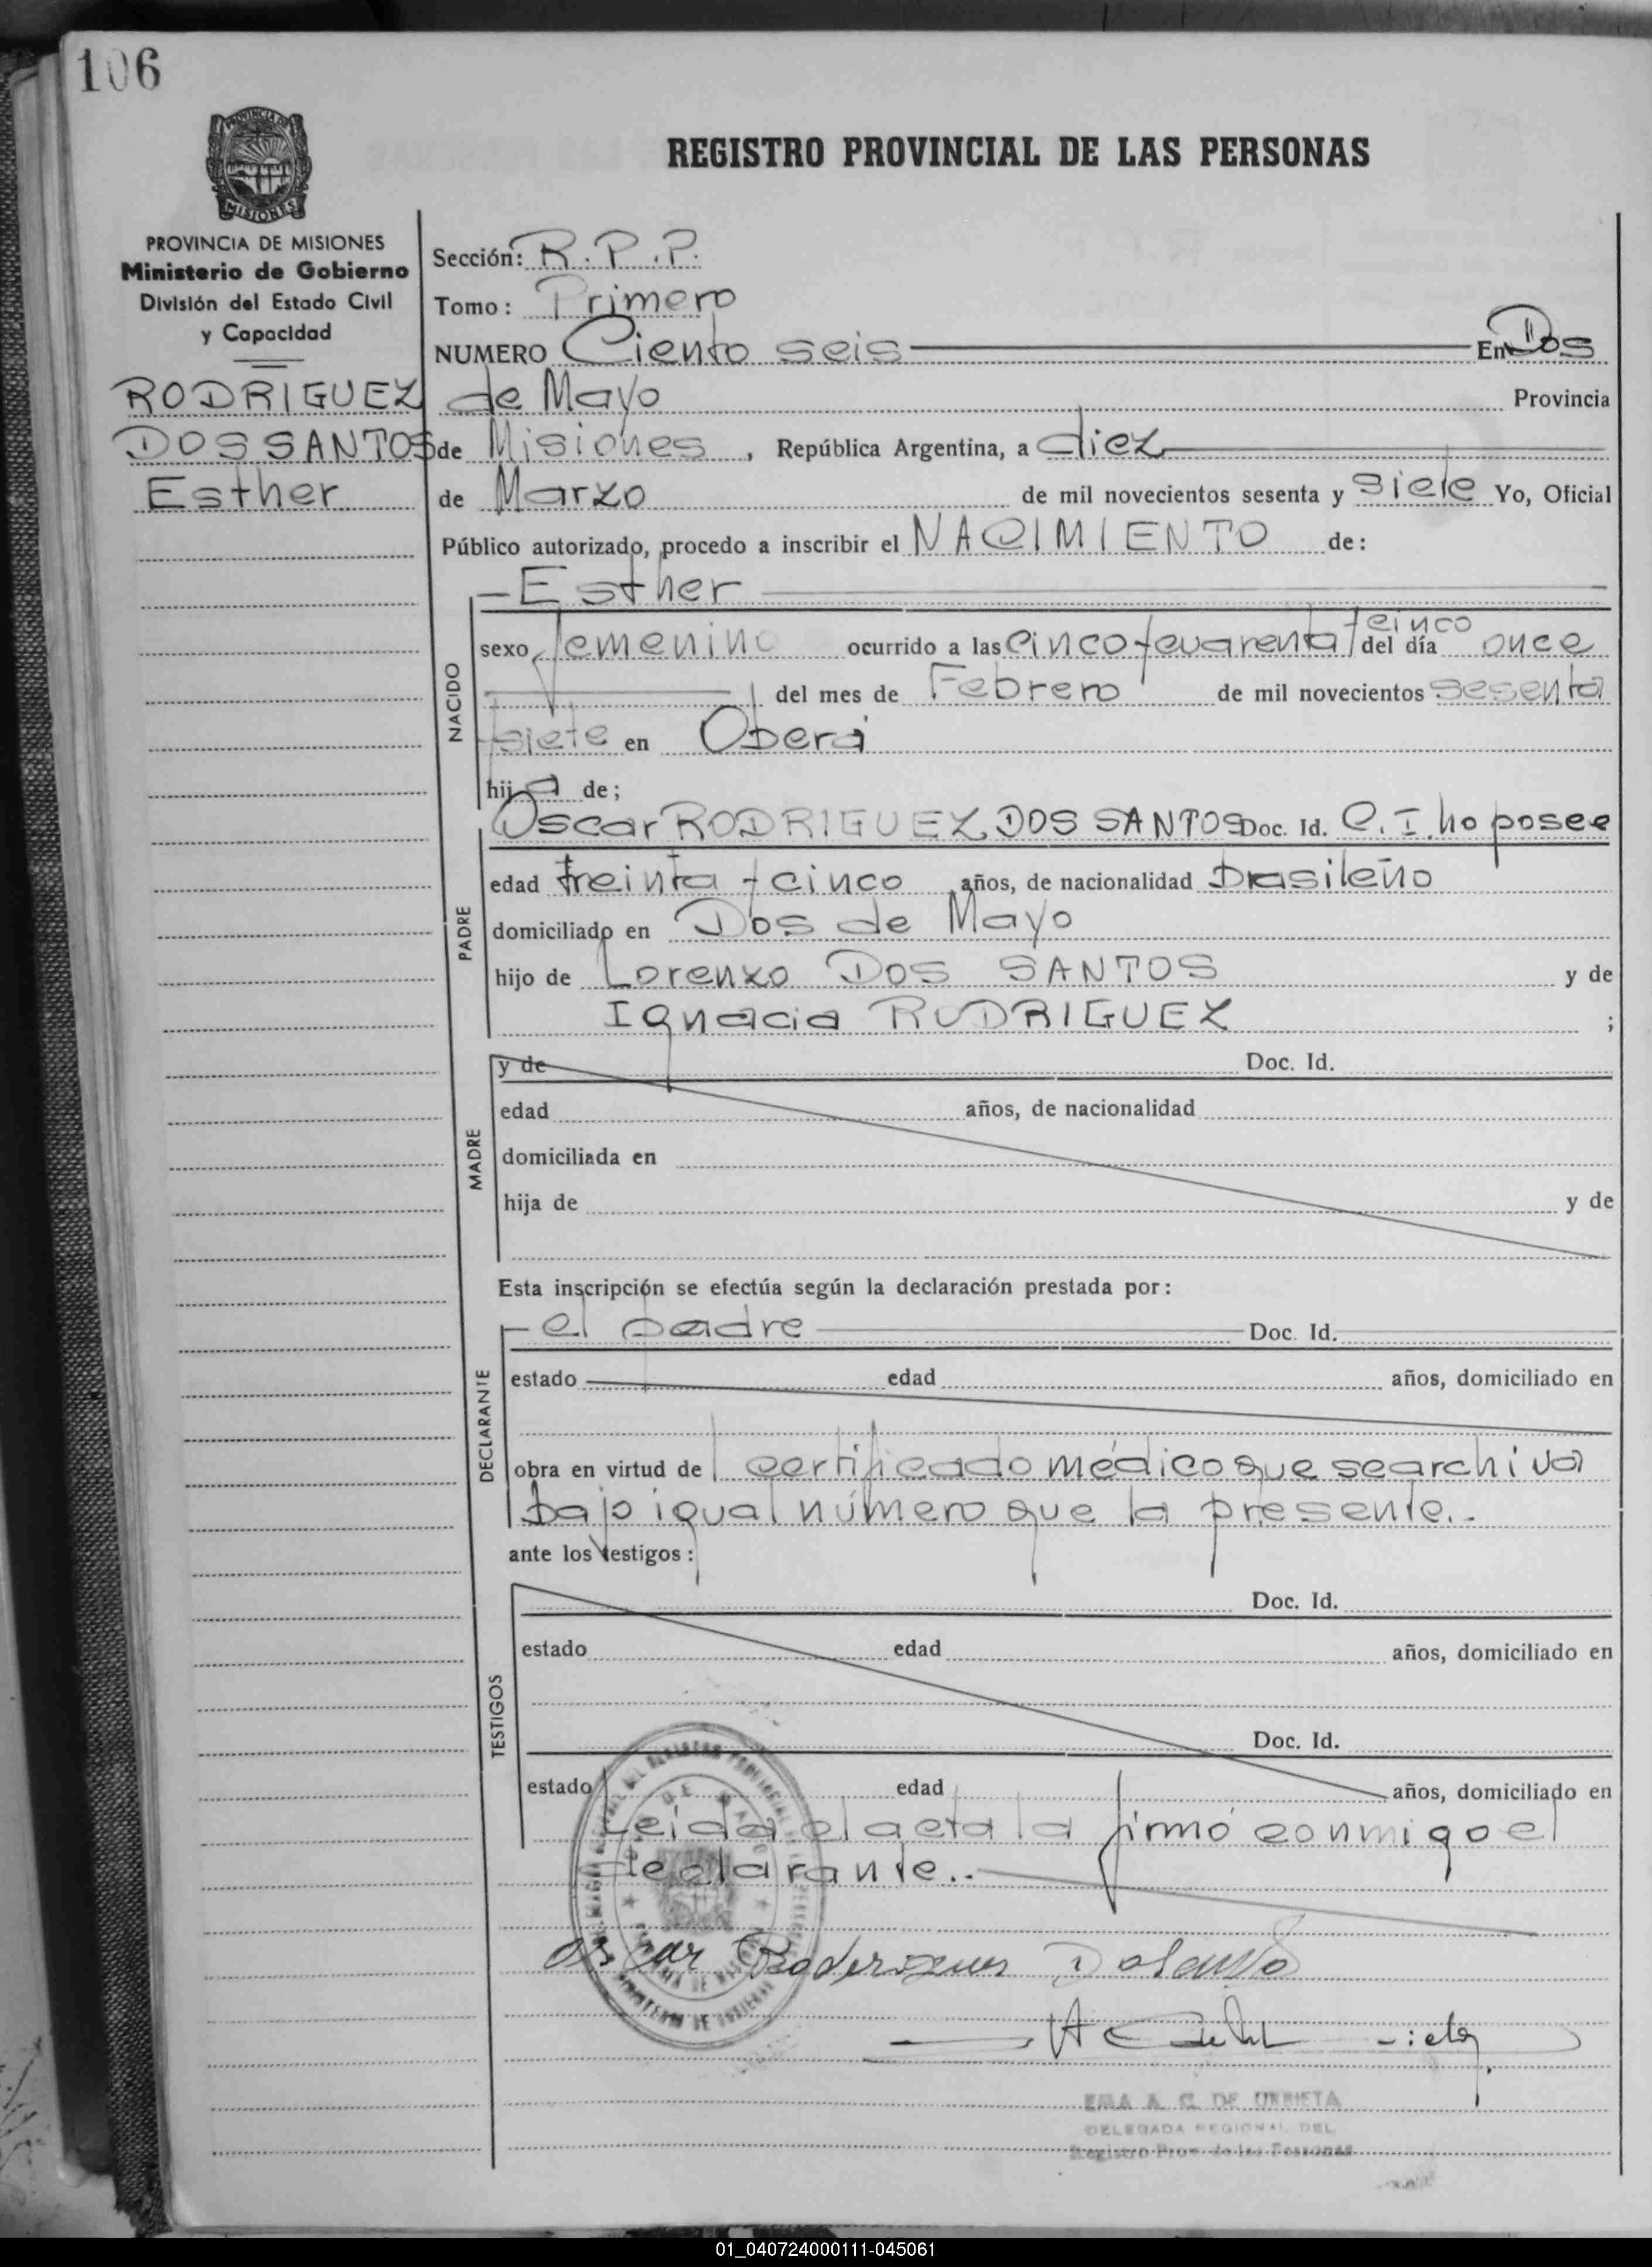 106
PROVINCIA DE MISIONES
REGISTRO PROVINCIAL DE LAS PERSONAS
PROVINCIA DE MISIONES
Ministerio de Gobierno
División del Estado Civil
y Capacidad
RODRIGUEZ
DOS SANTOS
Esther
Sección: R.P.P.
Tomo: Primero
NUMERO Ciento seis En Dos
de Mayo Provincia
de Misiones, República Argentina, a diez
de Marzo de mil novecientos sesenta y siete Yo, Oficial
Público autorizado, procedo a inscribir el NACIMIENTO de:
NACIDO
Esther
sexo femenino ocurrido a las cinco y cuarenta y cinco del día once
del mes de Febrero de mil novecientos sesenta
y siete en Oberá
hija de;
PADRE
Oscar RODRIGUEZ DOS SANTOS Doc. Id. C.I. no posee
edad treinta y cinco años, de nacionalidad brasileño
domiciliado en Dos de Mayo
hijo de Lorenzo DOS SANTOS y de
Ignacia RODRIGUEZ ;
MADRE
y de Doc. Id.
edad años, de nacionalidad
domiciliada en
hija de y de
Esta inscripción se efectúa según la declaración prestada por:
DECLARANTE
el padre Doc. Id.
estado edad años, domiciliado en
obra en virtud de certificado médico que se archiva
bajo igual número que la presente.-
ante los testigos:
TESTIGOS
Doc. Id.
estado edad años, domiciliado en
Doc. Id.
estado edad años, domiciliado en
Leida el acta la firmó conmigo el
declarante.-
Oscar
A. C. DE URRIETA
DELEGADA REGIONAL DEL
Registro Prov. de las Personas
01_040724000111-045061